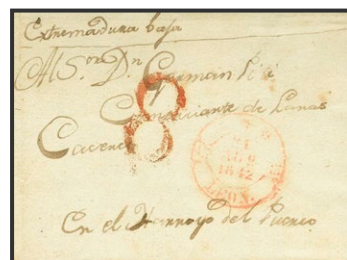 Extremadura baja
Al Sor. Dn. German
Comerciante de Lanas
Caceres
8
1842
LEON.
En el Arroyo del Puerco